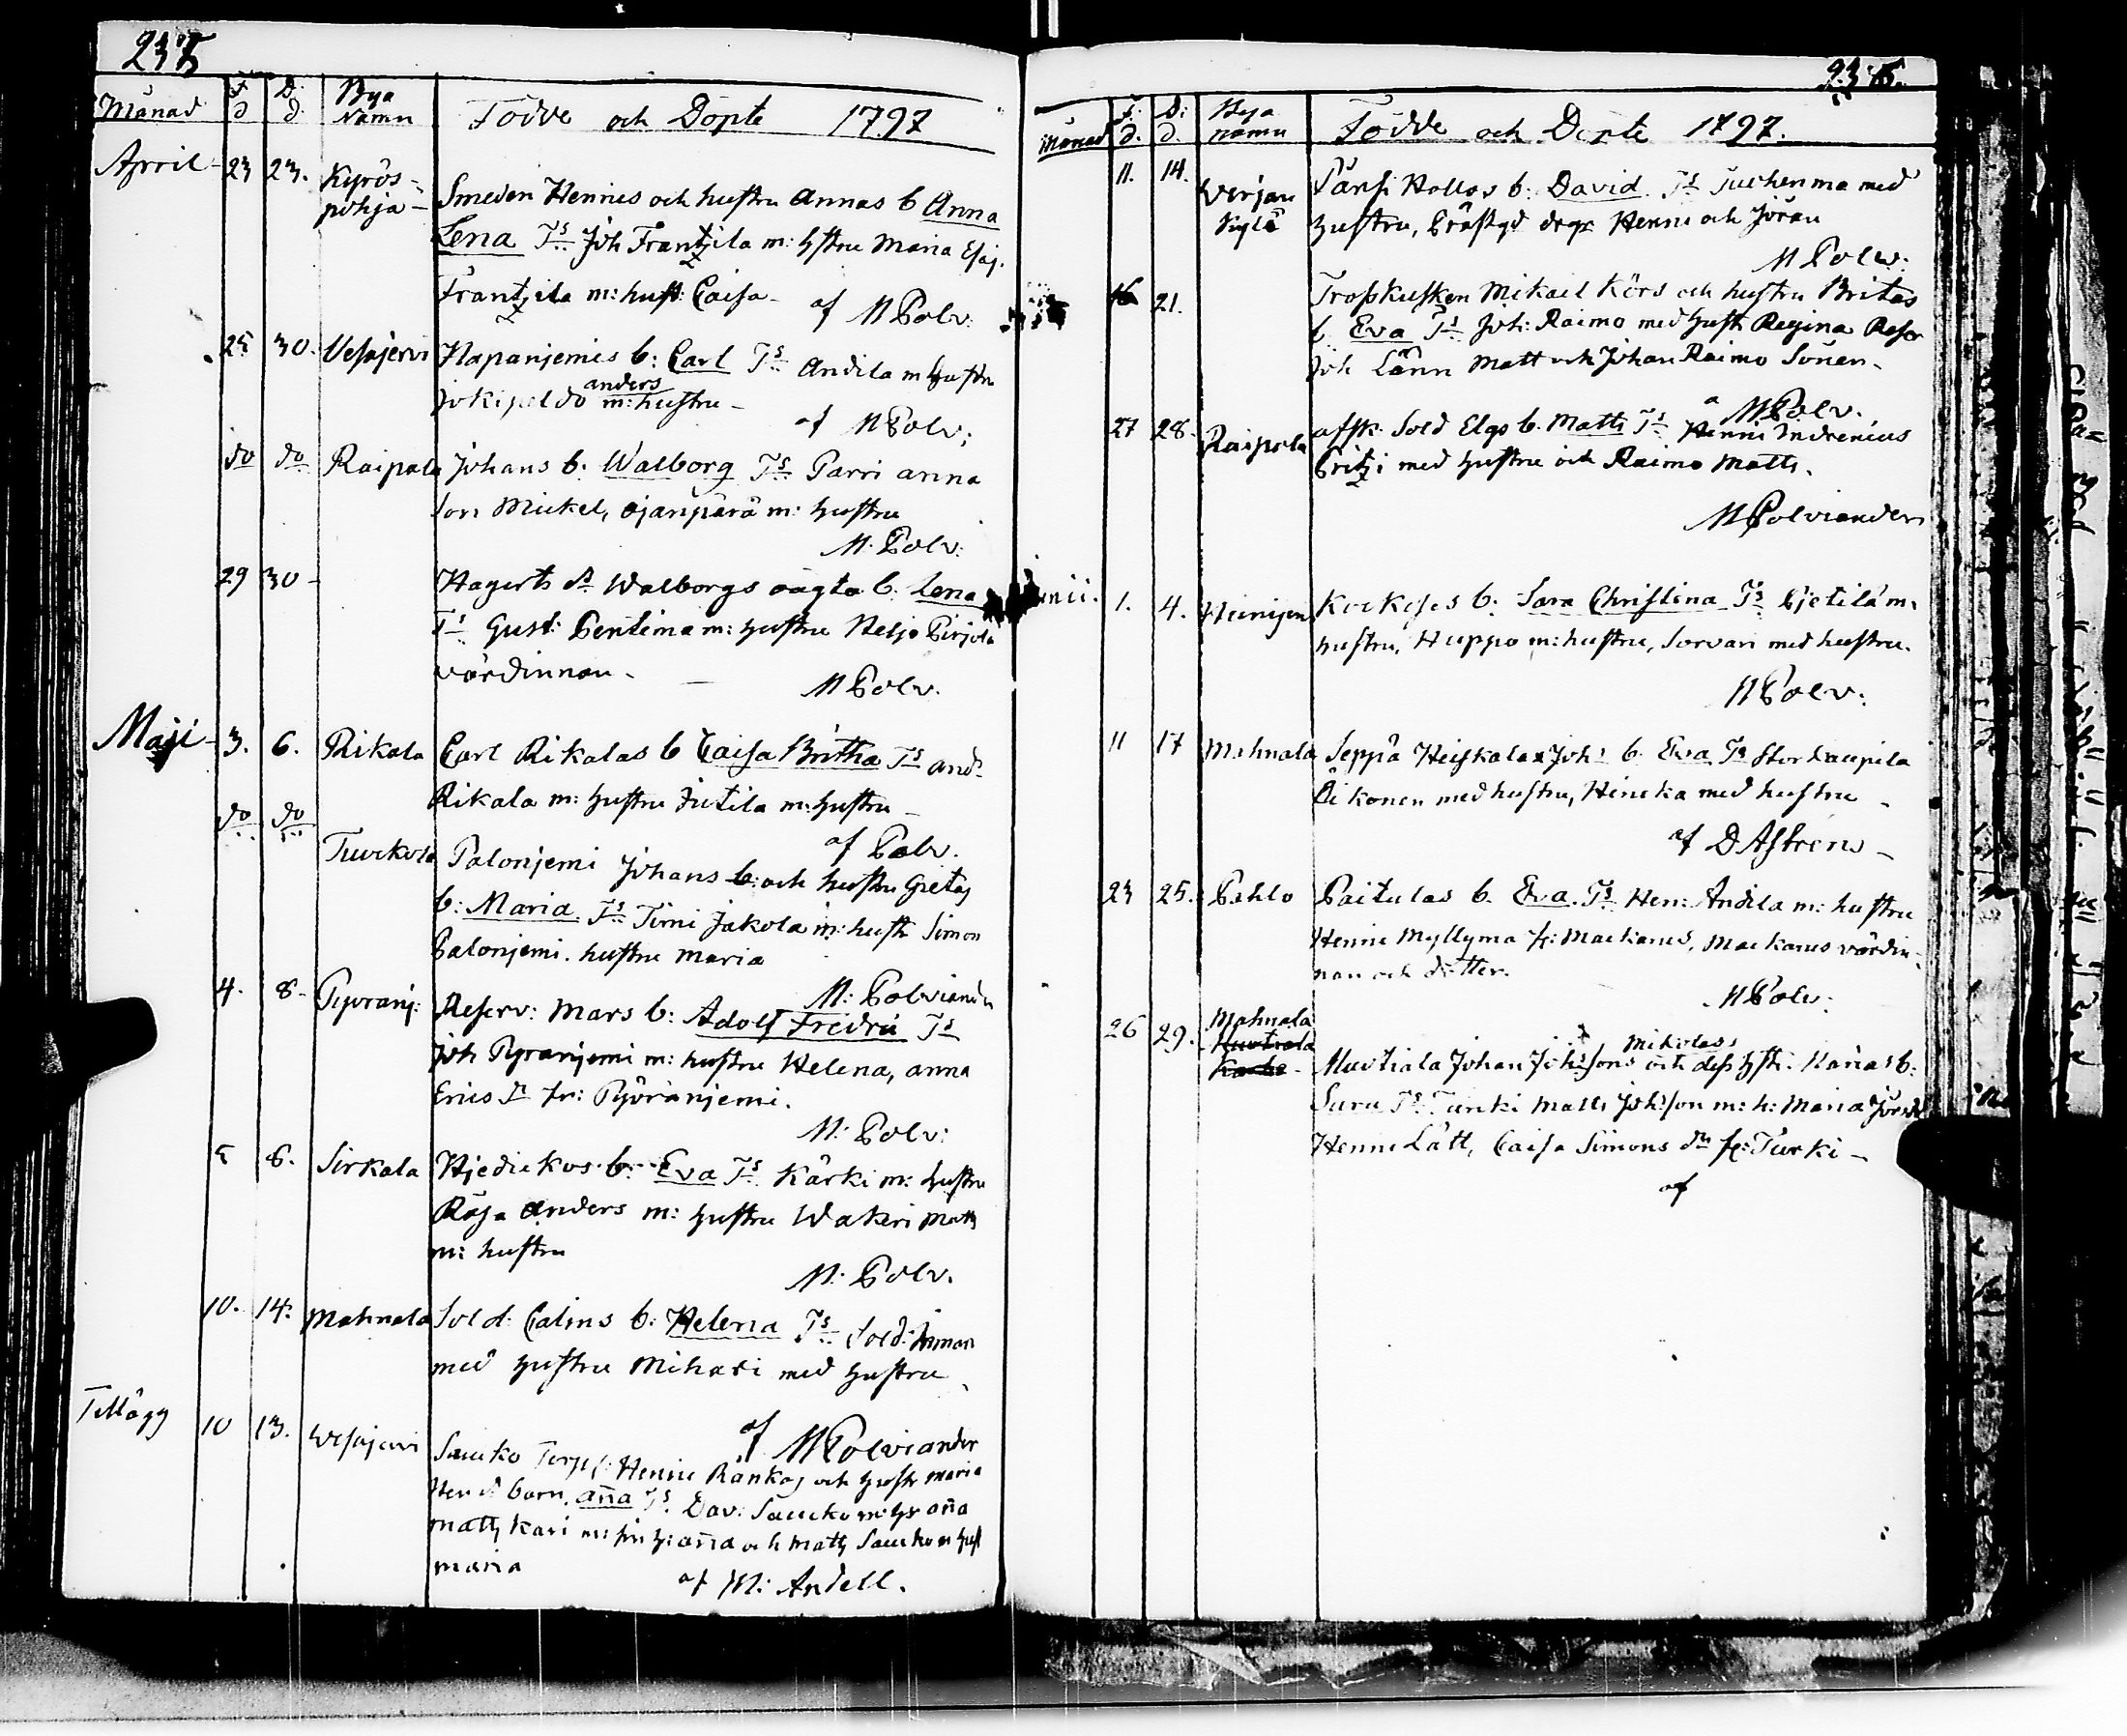 Månad F d D: d. Bya Namn Födde och Döpte 1797
April 23 23. Kyrös-
pohja Smeden Hennes och hustru Annas b Anna
Lena Ts Joh Frantzila m: hstru Maria Esaj.
Frantzila m: hust: Caisa -
af M Polv:
25 30. Vesajervi Hapanjemis b: Carl Ts Andila m hustru
anders
Jokipeldo m: hustru -
af M Polv:
do do Raipala Johans b. Walborg Ts Parri anna
son Mickel, Ojanpärä m: hustru
M. Polv:
29 30 - Hagerts dr Walborgs oägta b. Lena
Ts Gust: Pentima m: hustru Heljo Pirjola
värdinnan.
M Polv.
Maji 3. 6. Rikala Carl Rikalas b Caisa Britha Ts And:
Rikala m: hustru Jutila m: hustru
af Polv.
do do Tuorkola Palonjemi Johans b: och hustru Gretas
b: Maria Ts Timi Jakola m: hustr Simon
Palonjemi. hustru Maria
M: Polviander
4. 8. Pyoranj: Reserv: Mars b: Adolf Fredric Ts
Joh Pyranjemi m: hustru Helena, anna
Erics dr fr: Pyöränjemi.
M: Polv:
5 8. Sirkala Hjedikos b: Eva Ts Kärki m: hustru
Röja Anders m: hustru Wakeri Matts
m: hustru
M: Polv.
10. 14. Mahnala Sold: Calins b: Helena Ts Sold:
med hustru Mihari med hustru
af M Polviander
Tillägg 10 13. Wesajervi Saucko Torp: Henric Rankas och hustr Maria
Hen dr barn. Aña Ts Dav: Saucko m: hr aña
Matts Kari m: sin h: aña och Matts Saucko m hust
maria
af M: Andell.
Månad F: d. D: d. Bya namn Födde och Döpte 1797.
11. 14. Werjan
Kylä Pärsi Hollos b: David Ts Tuckenma med
hustru, drgr Henric och Jöran
M Polv:
16 21. Trosskusken Mikael Körs och hustru Britas
b. Eva Ts Joh: Raimo med hustr Regina Reser
Joh Länn Matt och Johan Raimo Sönen.
M Polv.
27 28. Raipola afsk. Sold Elgs b. Matts Ts Henric Indrenius
Pritzi med hustru och Raimo Matts.
M Polviander
Junii. 1. 4. Heinijem Kockoses b: Sara Christina Ts Pjetilä m:
hustru, Huppo m: hustru, Sorvari med hustru.
M Polv:
11 17 Mahnala Seppä Heiskalas Joh: b. Eva Ts Storkaupila
Rikonen med hustru, Heneka med hustru -
af D Astrens -
23 25. Pohlo Paitulas b. Eva. Ts Hen: Andila m: hustru
Henric Myllyma fr: Mackanes, Mackanes värdin-
nan och dotter.
M Polv:
26 29. Mahnala
Mikolass
Muotiala Johan Johsons och dess hstr. Karias b:
Sura Ts Turki Matts Johson m: h: Maria Jörsdr
Henric Lätt, Caisa Simons dr fr: Turki -
af